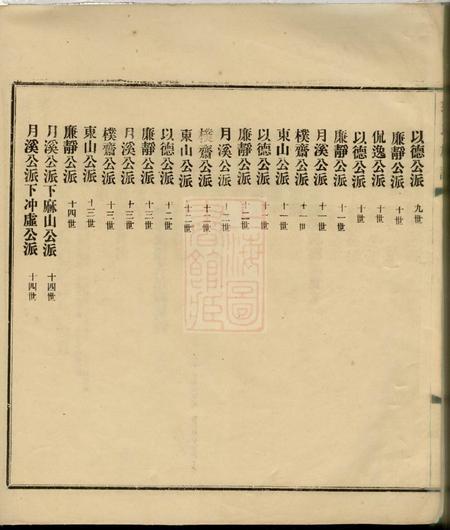 以德公派 九世
廉靜公派 十世
侃逸公派 十世
以德公派 十世
廉靜公派 十一世
月溪公派 十一世
樸齋公派 十一世
東山公派 十一世
以德公派
廉靜公派 十二世
月溪公派 十二世
樸齋公派 十二世
東山公派 十二世
以德公派 十二世
廉靜公派 十三世
月溪公派 十三世
樸齋公派 十三世
東山公派 十三世
廉靜公派 十四世
月溪公派下麻山公派 十四世
月溪公派下冲虛公派 十四世
上海圖書館藏